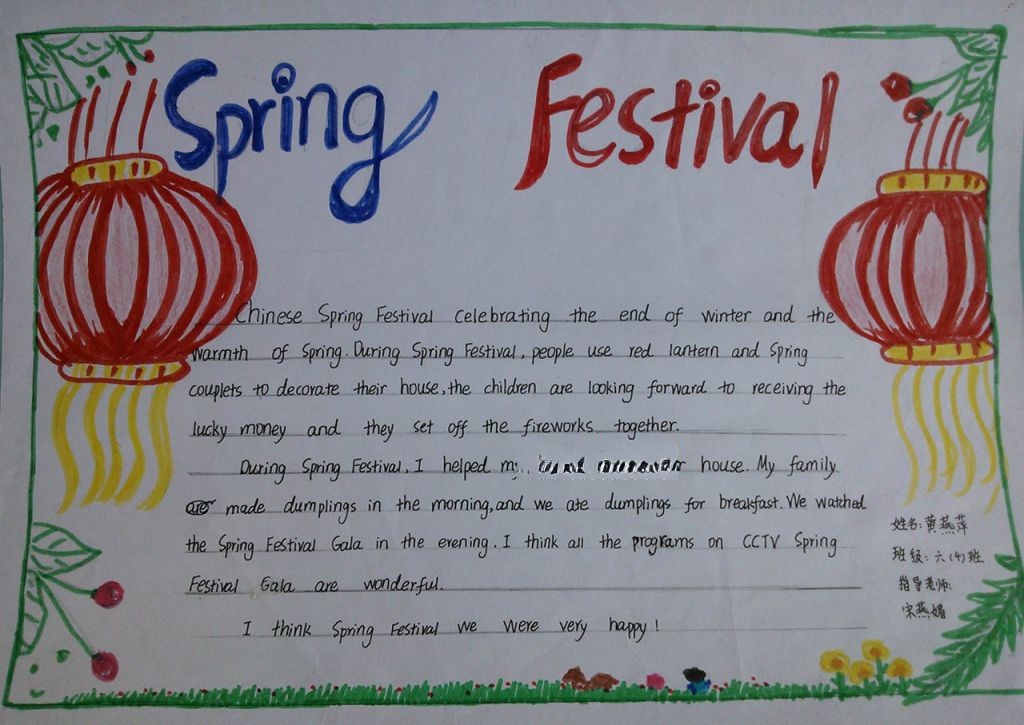 Spring Festival
Chinese Spring Festival celebrating the end of winter and the
warmth of spring. During Spring Festival, people use red lantern and Spring
couplets to decorate their house, the children are looking forward to receiving the
lucky money and they set off the fireworks together.
During Spring Festival, I helped house. My family
made dumplings in the morning, and we ate dumplings for breakfast. We watched
the Spring Festival Gala in the evening. I think all the programs on CCTV Spring
Festival Gala are wonderful.
I think Spring Festival we were very happy!
姓名: 黄燕萍
班级: 六(4)班
指导老师:
宋燕媚